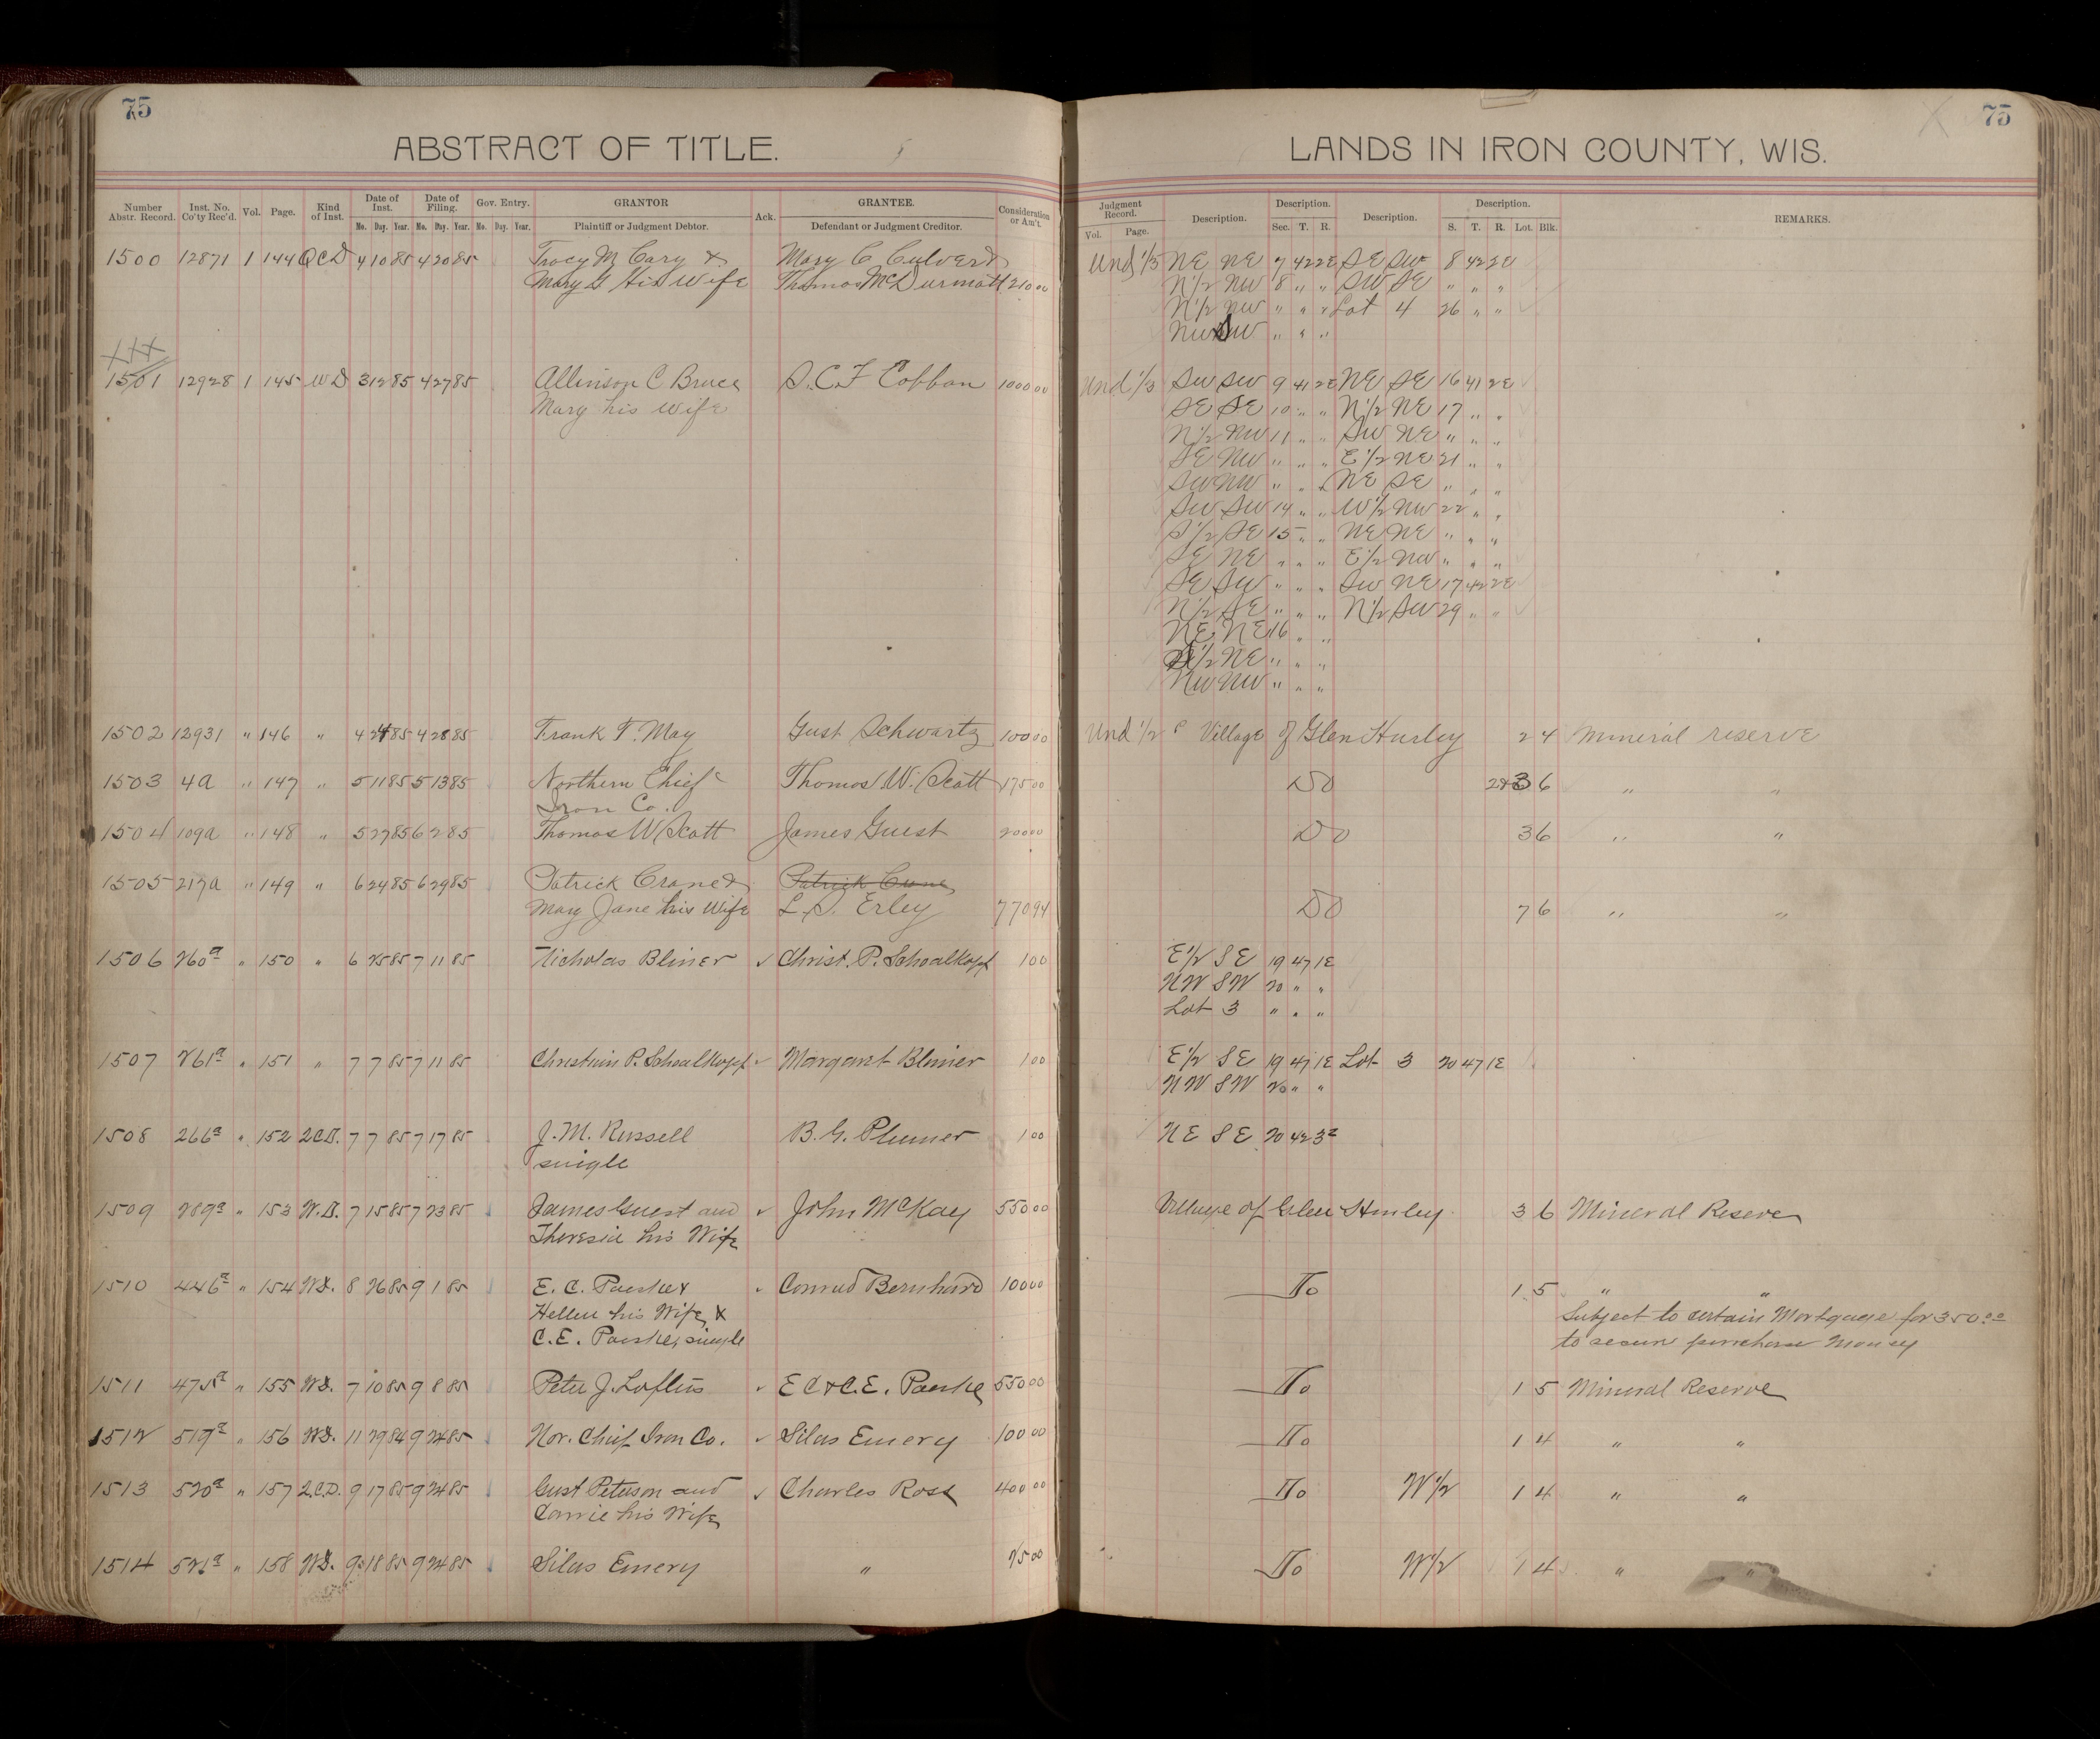 75
ABSTRACT OF TITLE.
Number Abstr. Record. Inst. No. Co'ty Rec'd. Vol. Page. Kind of Inst. Date of Inst. Date of Filing. Gov. Entry. GRANTOR Ack. GRANTEE. Consideration or Am't.
Mo. Day. Year. Mo. Day. Year. Mo. Day. Year. Plaintiff or Judgment Debtor. Defendant or Judgment Creditor.
1500 12871 1 144 QCD 4 10 85 4 20 85 Tracy M Cary & Mary C Culver &
Mary G His Wife Thomas McDurmott 210 00
XXX
1501 12928 1 145 WD 3 12 85 4 27 85 Allinson C Bruce S.C.F Cobban 1000 00
Mary his Wife
1502 12931 " 146 " 4 24 85 4 28 85 Frank T. May Gust Schwartz 100 00
1503 4a " 147 " 5 11 85 5 13 85 Northern Chief Thomas W. Scott 175 00
Iron Co.
1504 109a " 148 " 5 27 85 6 2 85 Thomas W Scott James Guest 200 00
1505 217a " 149 " 6 24 85 6 29 85 Patrick Crane & Patrick Crane
Mary Jane his Wife L.S. Erley 770 94
1506 260a " 150 " 6 25 85 7 11 85 Nicholas Blmer ✓ Christ. P. Schoalkopf 1 00
1507 261a " 151 " 7 7 85 7 11 85 Christian P. Schoalkopf ✓ Margaret Blmer 1 00
1508 266a " 152 2CD. 7 7 85 7 17 85 J. M. Russell B. G. Plumer 1 00
single
1509 289a " 153 W.D. 7 15 85 7 23 85 James Guest and ✓ John McKay 550 00
Theresia his Wife
1510 446a " 154 WD. 8 26 85 9 1 85 E. C. Paeske & ✓ Conrad Bernhard 100 00
Hellen his Wife &
C. E. Paeske, single
1511 475a " 155 WD. 7 10 85 9 8 85 Peter J. Loftus ✓ E C & C. E. Paeske 550 00
1512 519a " 156 WD. 11 29 84 9 24 85 Nor. Chief Iron Co. ✓ Silas Emery 100 00
1513 520a " 157 2.C.D. 9 17 85 9 24 85 Gust Peterson and ✓ Charles Ross 400 00
Carrie his Wife
1514 521a " 158 WD. 9 18 85 9 24 85 Silas Emery " 75 00
75
LANDS IN IRON COUNTY, WIS.
Judgment Record. Description. Description. Description. Description. REMARKS.
Vol. Page. Sec. T. R. S. T. R. Lot. Blk.
Und 1/3 NE NE 7 42 2E SE SW 8 42 2E
N 1/2 NW 8 " " SW SE " " "
N 1/2 NW " " " Lot 4 26 " "
NW SW " " "
Und 1/3 SW SW 9 41 2E NE SE 16 41 2E
SE SE 10 " " N 1/2 NE 17 " "
N 1/2 NW 11 " " SW NE " " "
SE NW " " " E 1/2 NE 21 " "
SW NW " " " NE SE " " "
SW SW 14 " " W 1/2 NW 22 " "
S 1/2 SE 15 " " NE NE " " "
SE NE " " " E 1/2 NW " " "
SE SW " " " SW NE 17 42 2E
N 1/2 SE " " " N 1/2 SW 29 " "
NE NE 16 " "
1/2 NE " " "
NW NW " " "
Und 1/2 Village of Glen Hurley 2 4 Mineral reserve
Do 3 6 " "
Do 3 6 " "
Do 7 6 " "
E 1/2 SE 19 47 1E
NW SW 20 " "
Lot 3 " " "
E 1/2 SE 19 47 1E Lot 3 20 47 1E
NW SW 20 " "
NE SE 20 42 3E
Village of Glen Hurley. 3 6 Mineral Reserve
Do 1 5 " "
Subject to certain Mortgage for 350.00
to secure purchase Money
Do 1 5 Mineral Reserve
Do 1 4 " "
Do W 1/2 1 4 " "
Do W 1/2 1 4 " "